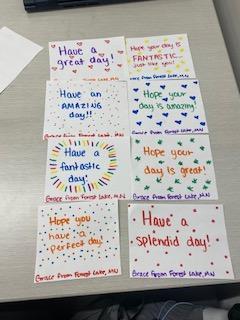 Have a
great day!
Lake, MN
Hope your day is
FANTASTIC...
just like you!
Grace from Forest Lake, MN
Have an
AMAZING
day!!
Grace from Forest Lake, MN
Hope your
day is amazing!
Grace from Forest Lake, MN
Have a
fantastic
day!
Grace from Forest Lake, MN
Hope your
day is great!
Grace from Forest Lake, MN
Hope you
have a
perfect day!
Grace from Forest Lake, MN
Have a
splendid day!
Grace from Forest Lake, MN